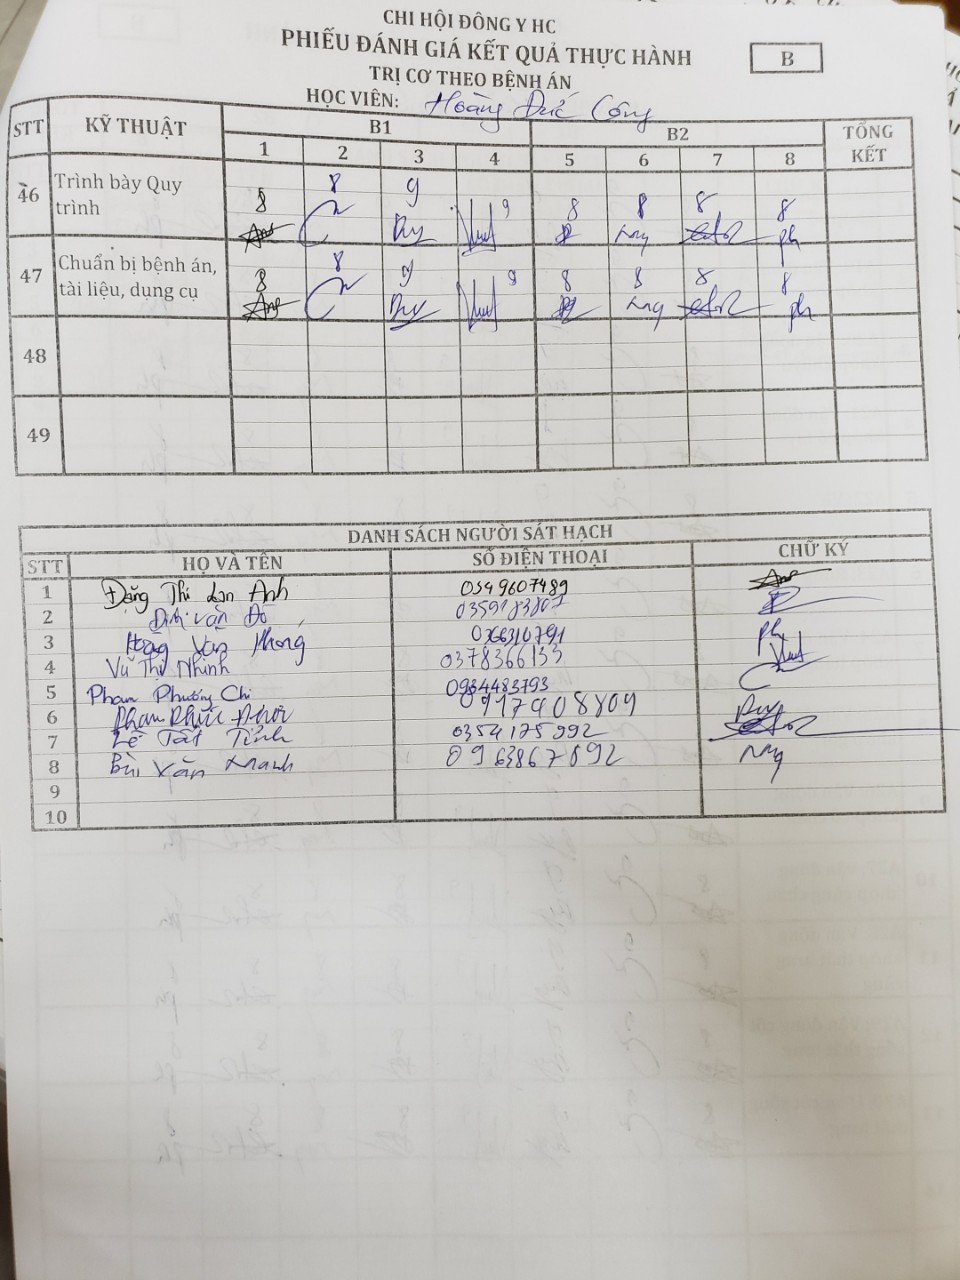 CHI HỘI ĐÔNG Y HC
PHIẾU ĐÁNH GIÁ KẾT QUẢ THỰC HÀNH
B
TRỊ CƠ THEO BỆNH ÁN
HỌC VIÊN: Hoàng Đức Công
STT KỸ THUẬT B1 B2 TỔNG KẾT
1 2 3 4 5 6 7 8
46 Trình bày Quy trình 8 8 9 9 8 8 8 8
47 Chuẩn bị bệnh án, tài liệu, dụng cụ 8 8 9 9 8 8 8 8
48
49
DANH SÁCH NGƯỜI SÁT HẠCH
STT HỌ VÀ TÊN SỐ ĐIỆN THOẠI CHỮ KÝ
1 Đặng Thị Lan Anh 0349607489
2 Đinh Văn Đô
3 Hoàng Văn Phong 0366310791
4 Vũ Thị Nhinh 0378366133
5 Phạm Phương Chi 0984483793
6 Phạm 0917408809
7 Lê Tất Tính 0354175992
8 Bùi Văn Mạnh 0963867892
9
10